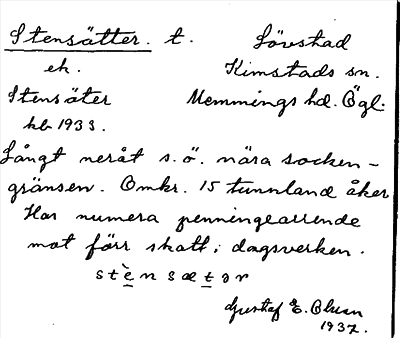 Stensätter. t. Lövstad
ek. Kimstads sn.
Stensäter Memmings hd. Ögl.
hb 1933.
Långt neråt s.ö. nära socken-
gränsen. Omkr. 15 tunnland åker
Har numera penningearrende
mot förr skatt i dagsverken.
stènsætər
Gustaf E. Olsson
1937.